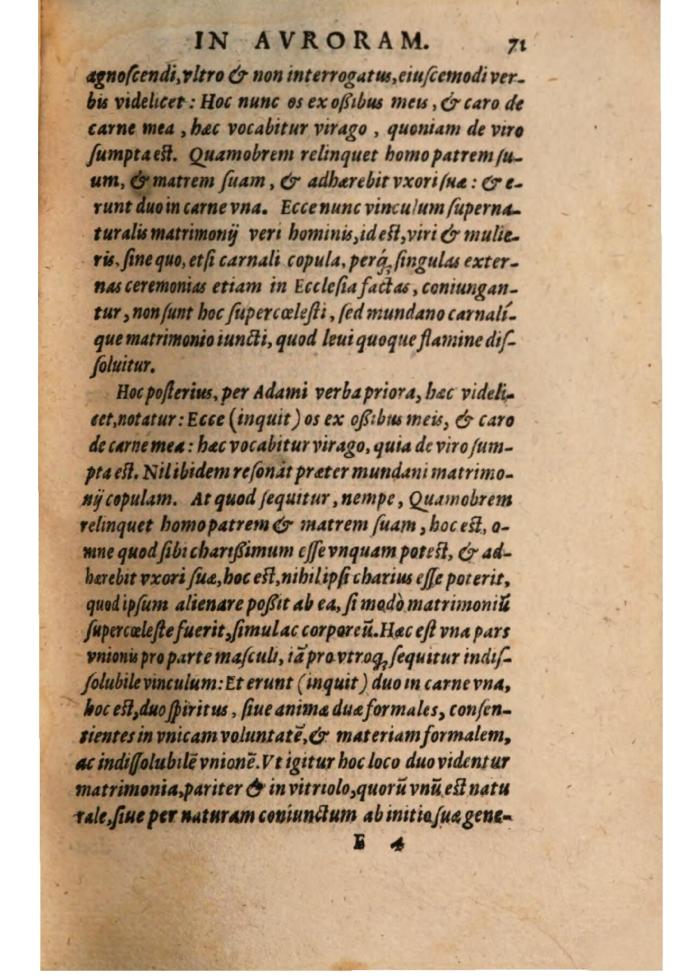 IN AVRORAM. 71
agnoſcendi, vltro & non interrogatus, eiuſcemodi ver-
bis videlicet: Hoc nunc os ex oßibus meis, & caro de
carne mea, hæc vocabitur virago, quoniam de viro
ſumpta eſt. Quamobrem relinquet homo patrem ſu-
um, & matrem ſuam, & adhærebit vxori ſuæ: & e-
runt duo in carne vna. Ecce nunc vinculum ſuperna-
turalis matrimonij veri hominis, id eſt, viri & mulie-
ris, ſine quo, etſi carnali copula, perq́; ſingulas exter-
nas ceremonias etiam in Eccleſia factas, coniungan-
tur, non ſunt hoc ſupercœleſti, ſed mundano carnalí-
que matrimonio iuncti, quod leui quoque flamine diſ-
ſoluitur.
Hoc poſterius, per Adami verba priora, hæc videli-
cet, notatur: Ecce (inquit) os ex oßibus meis, & caro
de carne mea: hæc vocabitur virago, quia de viro ſum-
pta eſt. Nil ibidem reſonat præter mundani matrimo-
nij copulam. At quod ſequitur, nempe, Quamobrem
relinquet homo patrem & matrem ſuam, hoc eſt, o-
mne quod ſibi charißimum eſſe vnquam poteſt, & ad-
hærebit vxori ſuæ, hoc eſt, nihil ipſi charius eſſe poterit,
quod ipſum alienare poßit ab ea, ſi modò matrimoniū
ſupercœleſte fuerit, ſimul ac corporeū. Hæc eſt vna pars
vnionis pro parte maſculi, iā pro vtroq; ſequitur indiſ-
ſolubile vinculum: Et erunt (inquit) duo in carne vna,
hoc eſt, duo ſpiritus, ſiue animæ duæ formales, conſen-
tientes in vnicam voluntatē, & materiam formalem,
ac indiſſolubilē vnionē. Vt igitur hoc loco duo videntur
matrimonia, pariter & in vitriolo, quorū vnū eſt natu
rale, ſiue per naturam coniunctum ab initio ſuæ gene-
E 4